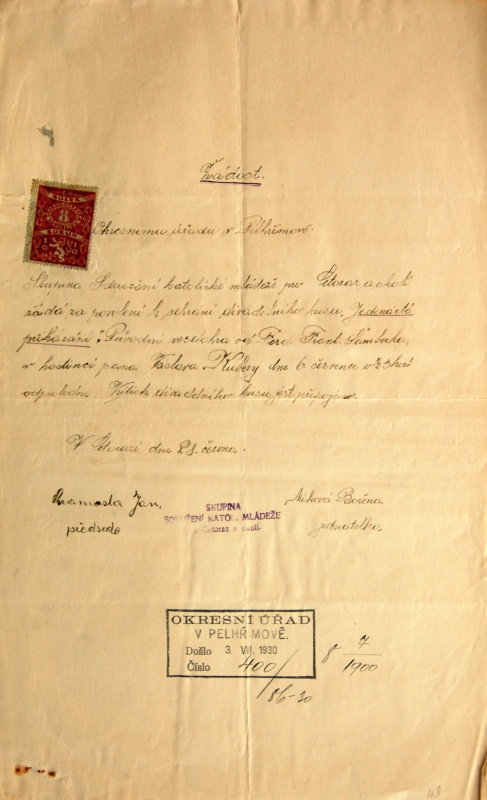 Žádost.
KOLEK
8
KORUN
1930
Okresnímu úřadu v Pelhřimově.
Skupina Sdružení katolické mládeže pro Cetoraz a okolí
žádá za povolení k sehrání divadelního kusu „Jedenácté
přikázání". Původní veselohra od Ferd. Frant. Šamberka,
v hostinci pana Václava Kubery dne 6. července o ½ 3 hod
odpoledne. Výtisk divadelního kusu jest připojen.
V Cetorazi, dne 28. června.
Jan,
předseda
SKUPINA
SDRUŽENÍ KATOL. MLÁDEŽE
v Cetoraz a okolí.
Miková Božena
jednatelka
OKRESNÍ ÚŘAD
V PELHŘIMOVĚ.
Došlo 3. VII. 1930
Číslo 400/
8 7/1900
86-30
43